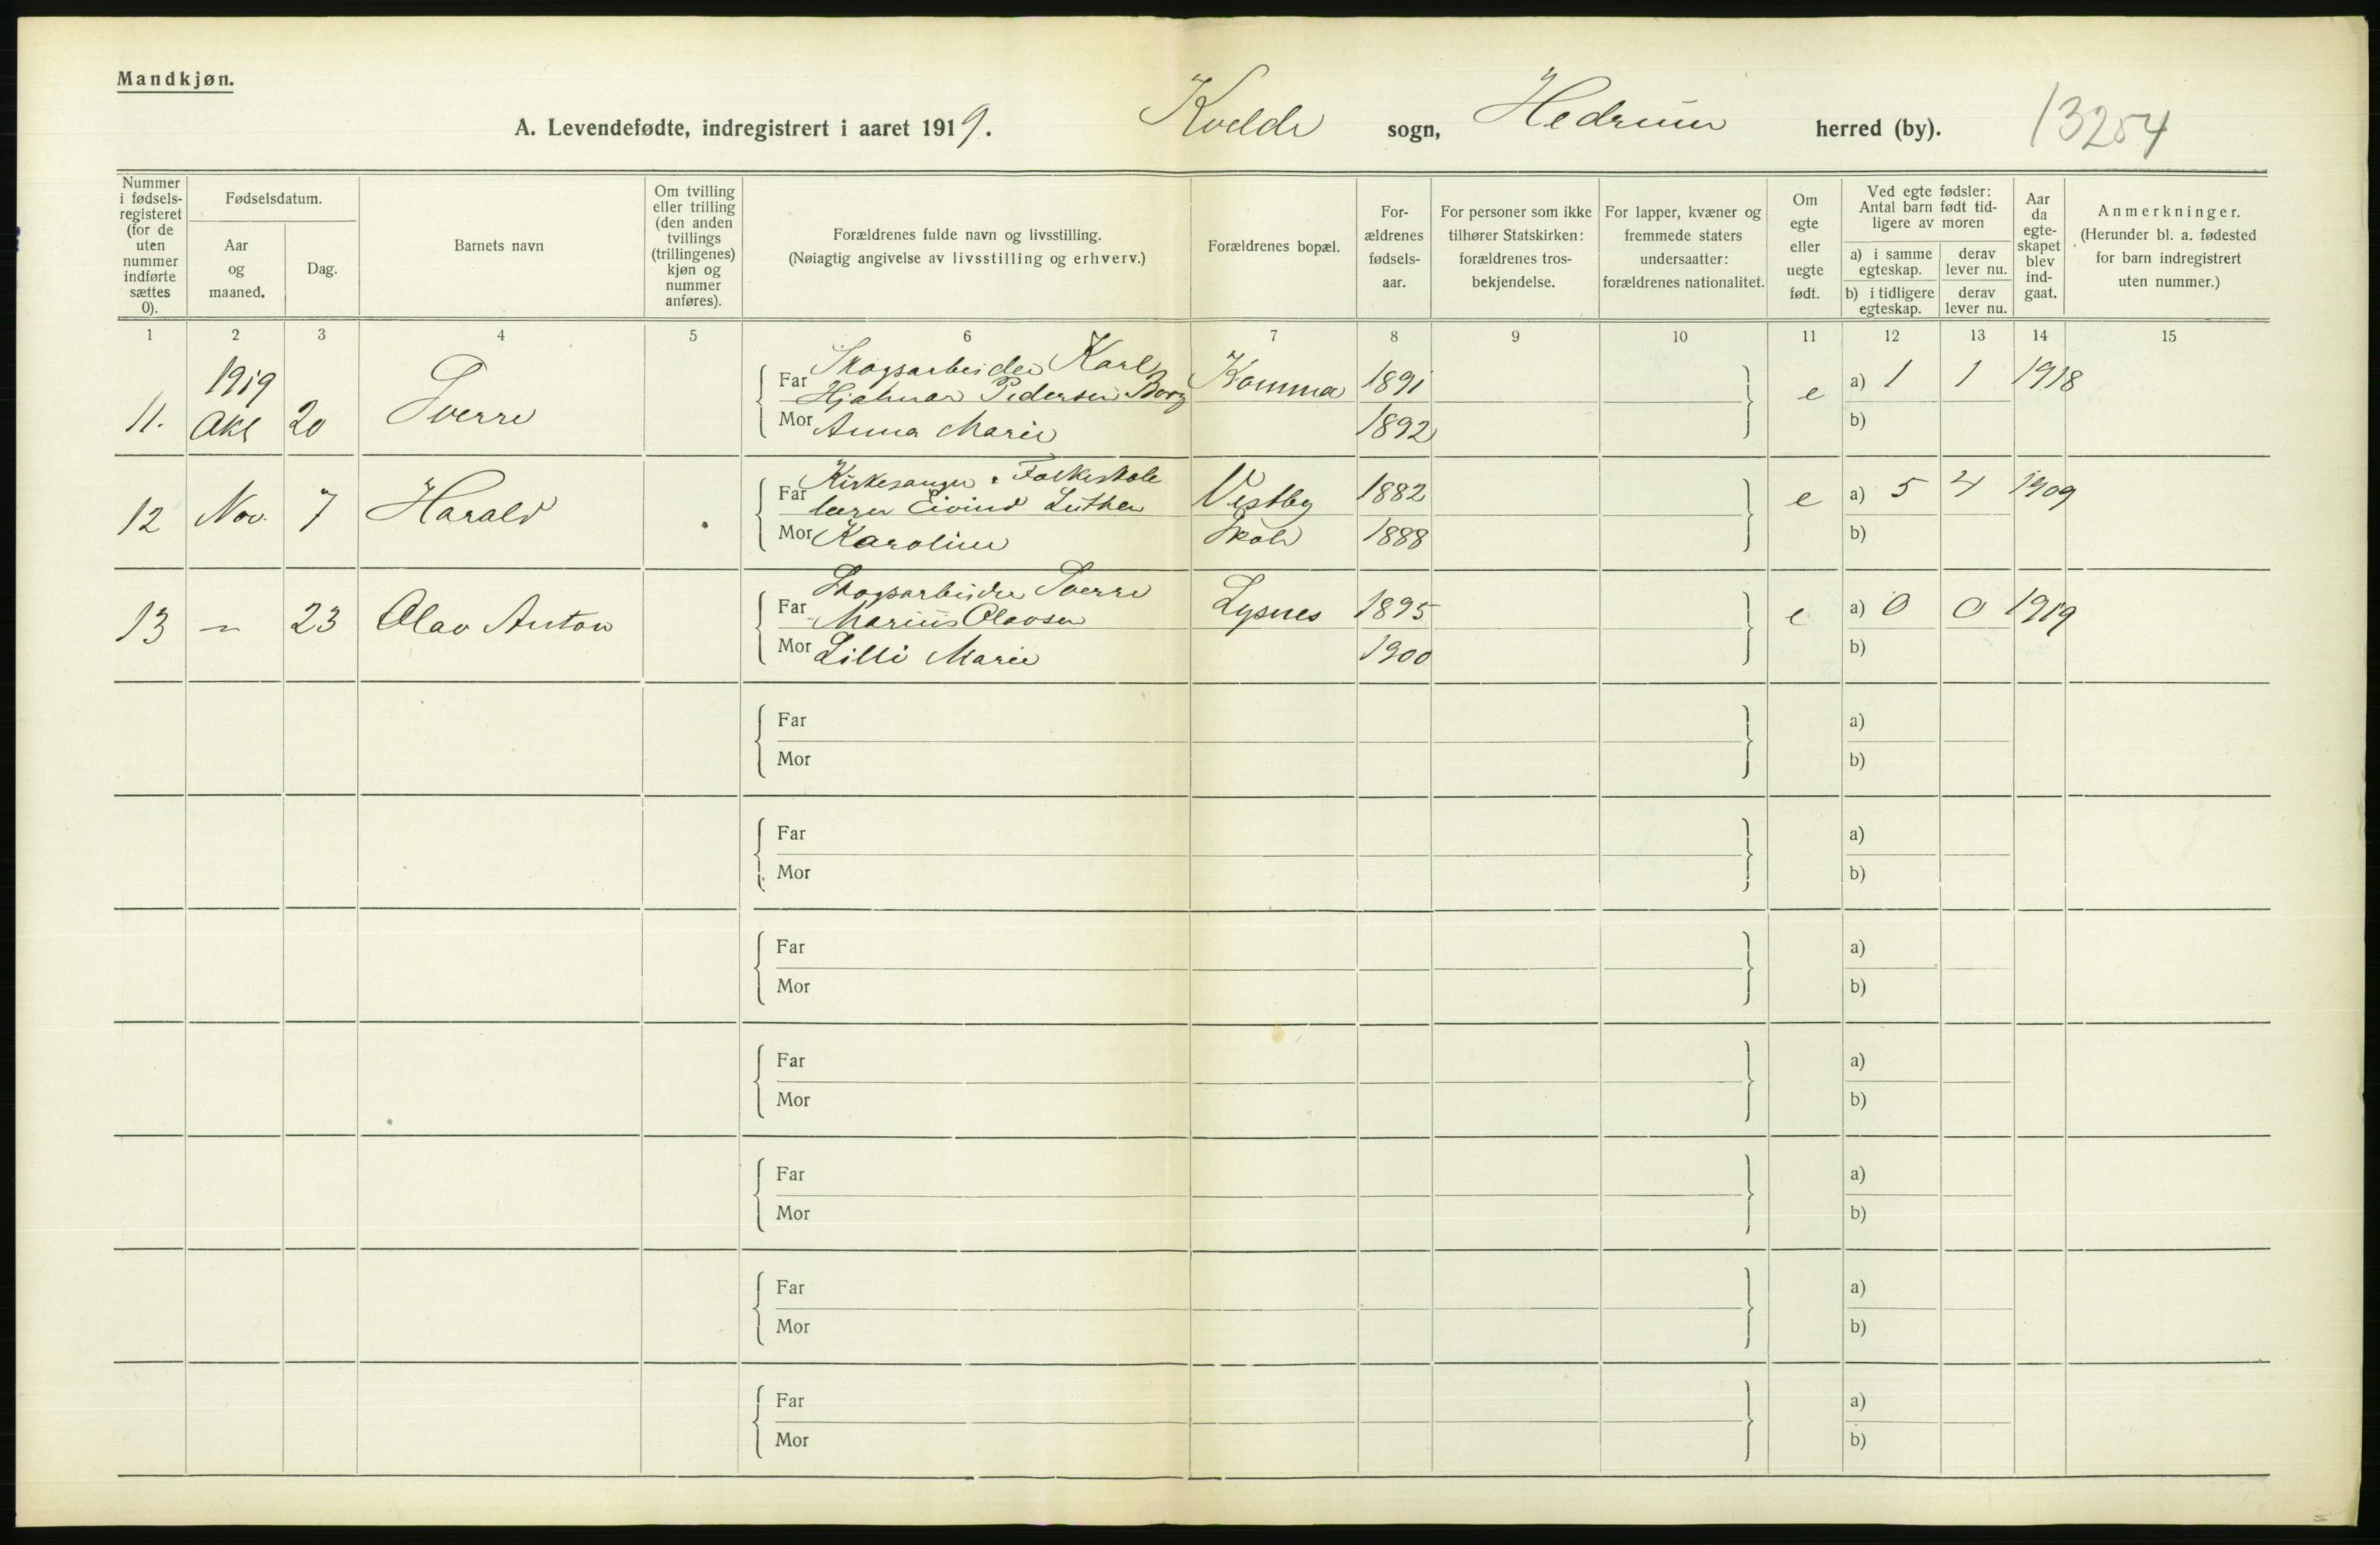 Mandkjøn.
A. Levendefødte, indregistrert i aaret 1919. Kvelde sogn, Hedrum herred (by). 13254
Nummer i fødsels-registeret (for de uten nummer indførte sættes 0).
Fødselsdatum.
Aar og maaned.
Dag.
Barnets navn
Om tvilling eller trilling (den anden tvillings (trillingenes) kjøn og nummer anføres).
Forældrenes fulde navn og livsstilling.
(Nøiagtig angivelse av livsstilling og erhverv.)
Forældrenes bopæl.
For-ældrenes fødsels-aar.
For personer som ikke tilhører Statskirken: forældrenes tros-bekjendelse.
For lapper, kvæner og fremmede staters undersaatter: forældrenes nationalitet.
Om egte eller uegte født.
Ved egte fødsler: Antal barn født tid-ligere av moren
a) i samme egteskap.
derav lever nu.
b) i tidligere egteskap.
derav lever nu.
Aar da egte-skapet blev ind-gaat.
Anmerkninger.
(Herunder bl. a. fødested for barn indregistrert uten nummer.)
1 2 3 4 5 6 7 8 9 10 11 12 13 14 15
1919
11. Okt 20 Sverre
Far Skogsarbeider Karl
Hjalmar Pedersen Borg Komma 1891 e a) 1 1 1918
Mor Anna Marie 1892 b)
12 Nov. 7 Harald
Far Kirkesanger & Folkeskole
lærer Eivind Luther Vestby 1882 e a) 5 4 1909
Mor Karoline Skole 1888 b)
13 -"- 23 Olav Anton
Far Skogsarbeider Sverre
Marius Olavsen Lysnes 1895 e a) 0 0 1919
Mor Lilli Marie 1900 b)
Far a)
Mor b)
Far a)
Mor b)
Far a)
Mor b)
Far a)
Mor b)
Far a)
Mor b)
Far a)
Mor b)
Far a)
Mor b)